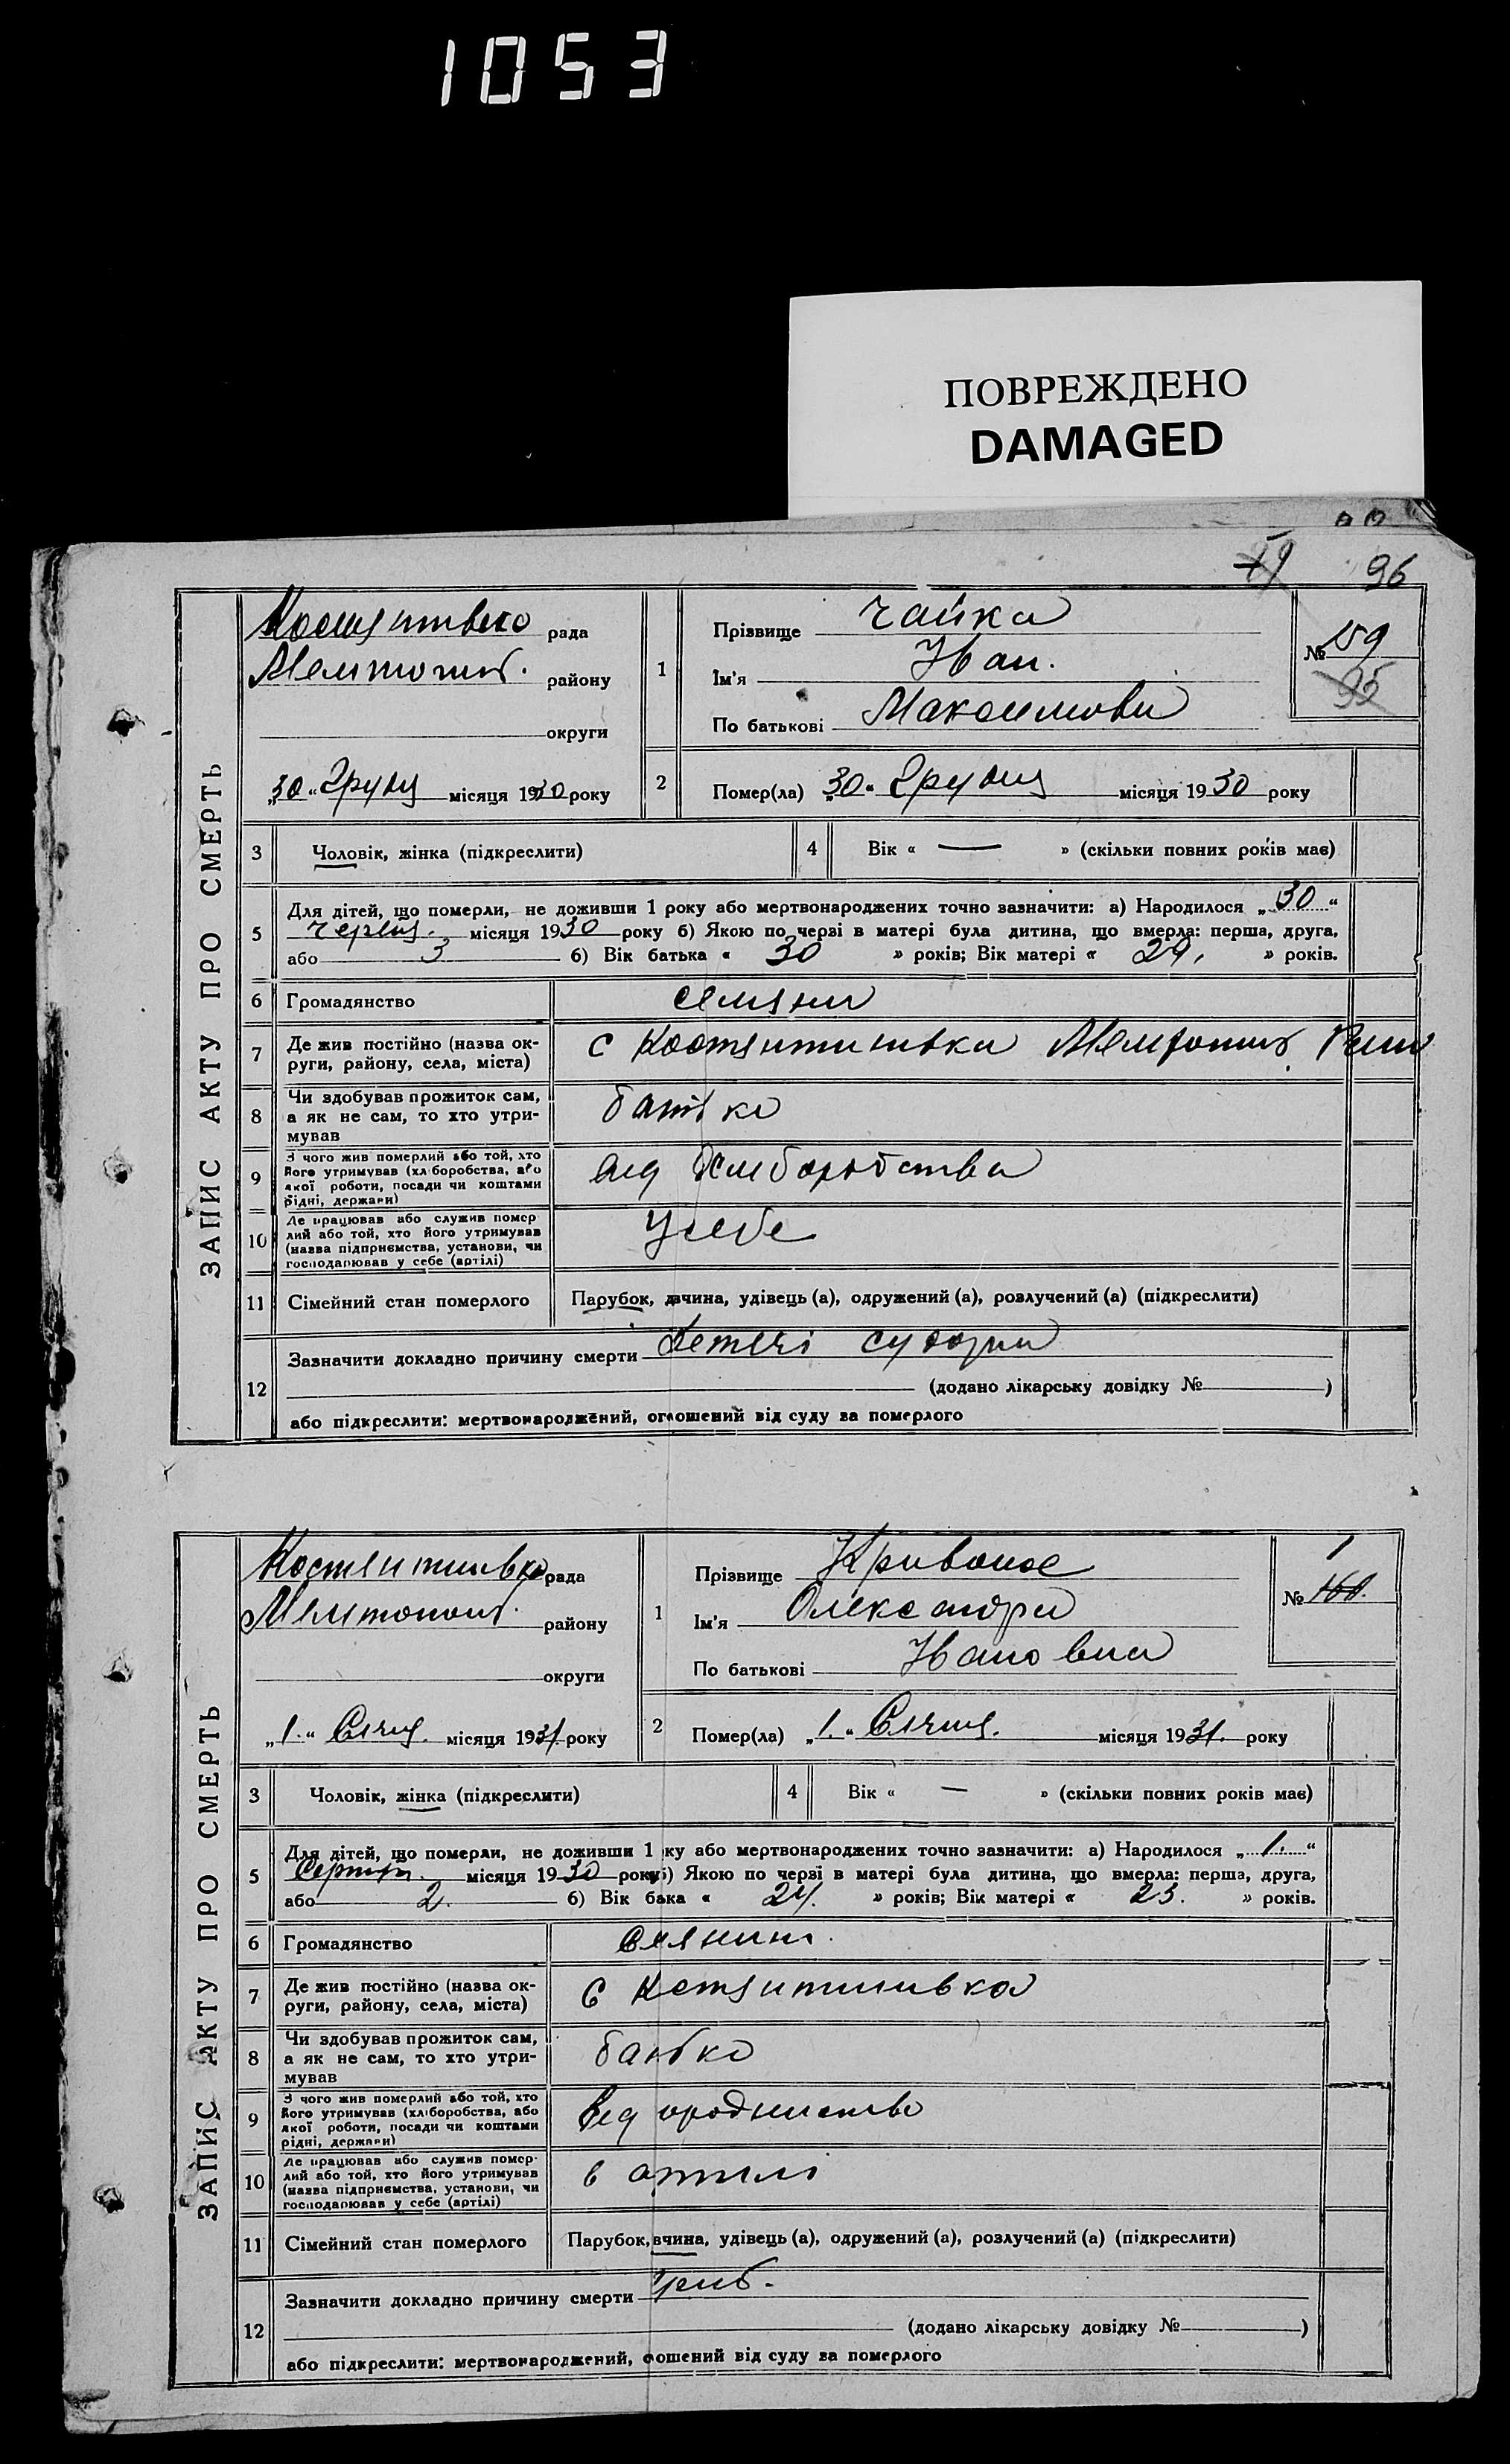 1053
ПОВРЕЖДЕНО
DAMAGED
96
ЗАПИС АКТУ ПРО СМЕРТЬ
рада
Мелитопол. району
округи
„30“ Грудня місяця 1930 року
1
Прізвище Чайка
Ім'я Иван.
По батькові Максимови
№ 159
95
2
Помер(ла) „30“ Грудня місяця 1930 року
3 Чоловік, жінка (підкреслити)
4 Вік « — » (скільки повних років має)
5 Для дітей, що померли, не доживши 1 року або мертвонароджених точно зазначити: а) Народилося „30“
Червня. місяця 1930 року б) Якою по черзі в матері була дитина, що вмерла: перша, друга,
або 3 б) Вік батька « 30 » років; Вік матері « 29. » років.
6 Громадянство селяни
7 Де жив постійно (назва ок-
руги, району, села, міста)
с Костянтинівка Мелитопол.
8 Чи здобував прожиток сам,
а як не сам, то хто утри-
мував
батько
9 З чого жив померлий або той, хто
його утримував (хліборобства, або
якої роботи, посади чи коштами
рідні, держави)
від Хлиборобства
10 Де працював або служив помер
лий або той, хто його утримував
(назва підприємства, установи, чи
господарював у себе (артілі)
У себе
11 Сімейний стан померлого Парубок, дівчина, удівець (а), одружений (а), розлучений (а) (підкреслити)
12 Зазначити докладно причину смерти судорги
(додано лікарську довідку № )
або підкреслити: мертвонароджений, оголошений від суду за померлого
ЗАПИС АКТУ ПРО СМЕРТЬ
Костянтинівка рада
Мелитопол. району
округи
„1.“ Січня. місяця 1931. року
1
Прізвище
Ім'я Олександра
По батькові Ивановна
1
№ 160.
2
Помер(ла) „1.“ Січня. місяця 1931. року
3 Чоловік, жінка (підкреслити)
4 Вік « — » (скільки повних років має)
5 Для дітей, що померли, не доживши 1 ку або мертвонароджених точно зазначити: а) Народилося „1.“
Серпня. місяця 1930 року б) Якою по черзі в матері була дитина, що вмерла: перша, друга,
або 2. б) Вік бака « 24. » років; Вік матері « 23. » років.
6 Громадянство селянин.
7 Де жив постійно (назва ок-
руги, району, села, міста)
С Костянтинивка
8 Чи здобував прожиток сам,
а як не сам, то хто утри-
мував
батько
9 З чого жив померлий або той, хто
його утримував (хліборобства, або
якої роботи, посади чи коштами
рідні, держави)
від
10 Де працював або служив помер-
лий або той, хто його утримував
(назва підприємства, установи, чи
господарював у себе (артілі)
в артилі
11 Сімейний стан померлого Парубок, вчина, удівець (а), одружений (а), розлучений (а) (підкреслити)
12 Зазначити докладно причину смерти
(додано лікарську довідку № )
або підкреслити: мертвонароджений, ошений від суду за померлого